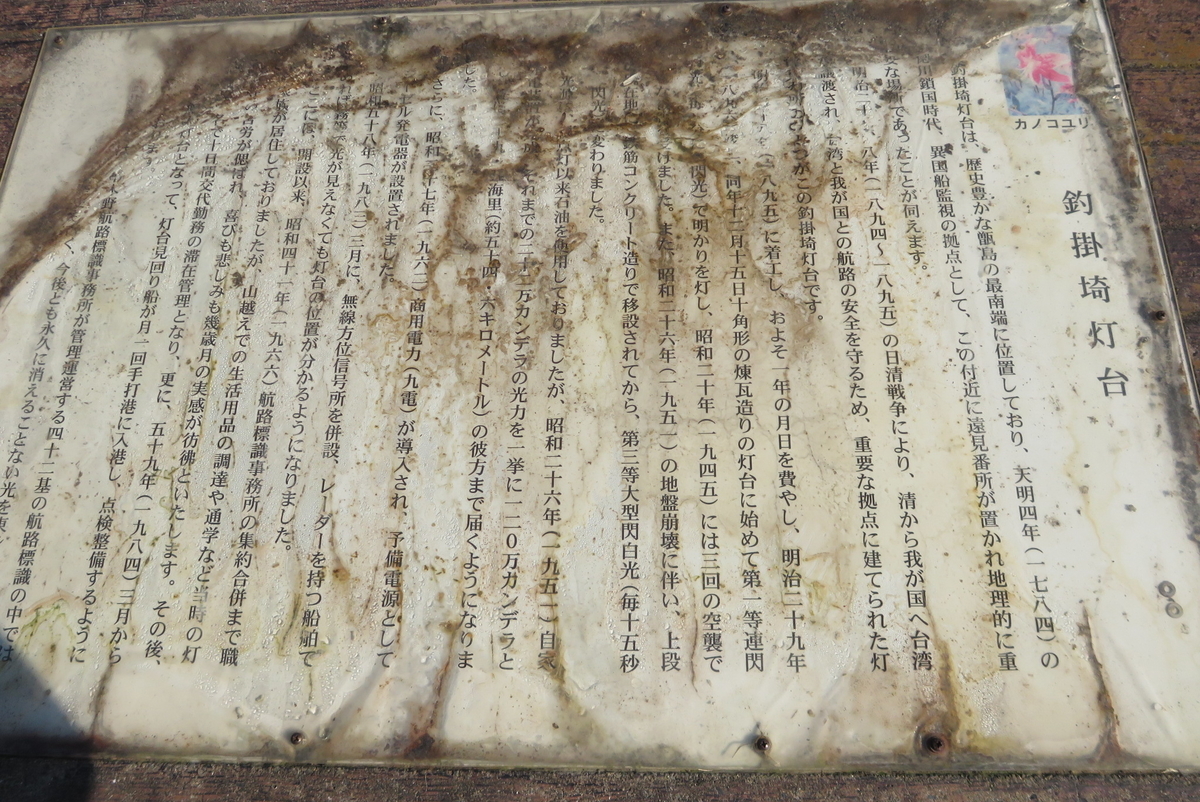 釣掛埼灯台
カノコユリ
釣掛埼灯台は、歴史豊かな甑島の最南端に位置しており、天明四年(一七八四)の
鎖国時代、異国船監視の拠点として、この付近に遠見番所が置かれ地理的に重
な場所であったことが伺えます。
明治二十 八年(一八九四〜一八九五)の日清戦争により、清から我が国へ台湾
譲渡され、 湾と我が国との航路の安全を守るため、重要な拠点に建てられた灯
がこの釣掛埼灯台です。
八九五)に着工し、およそ一年の月日を費やし、明治二十九年
同年十二月十五日十角形の煉瓦造りの灯台に始めて第一等連閃
閃光)で明かりを灯し、昭和二十年(一九四五)には三回の空襲で
けました。また、昭和二十六年(一九五一)の地盤崩壊に伴い、上段
鉄筋コンクリート造りで移設されてから、第三等大型閃白光(毎十五秒
閃光 変わりました。
灯以来石油を使用しておりましたが、昭和二十六年(一九五一)自家
それまでの二十二万カンデラの光力を一挙に一二〇万カンデラと
海里(約五十四・六キロメートル)の彼方まで届くようになりま
した。
さらに、昭和 十七年(一九六二)商用電力(九電)が導入され、予備電源として
ル発電器が設置されました。
昭和五十八年(一九八三)三月に、無線方位信号所を併設、レーダーを持つ船舶で
光が見えなくても灯台の位置が分かるようになりました。
ここには、開設以来、昭和四十一年(一九六六)航路標識事務所の集約合併まで職
族が居住しておりましたが、山越えでの生活用品の調達や通学など当時の灯
の苦労が偲ばれ、喜びも悲しみも幾歳月の実感が彷彿といたします。その後、
で十日間交代勤務の滞在管理となり、更に、五十九年(一九八四)三月から
台となって、灯台見回り船が月一回手打港に入港し、点検整備するように
ます。
野航路標識事務所が管理運営する四十二基の航路標識の中では
く、今後とも永久に消えることない光を